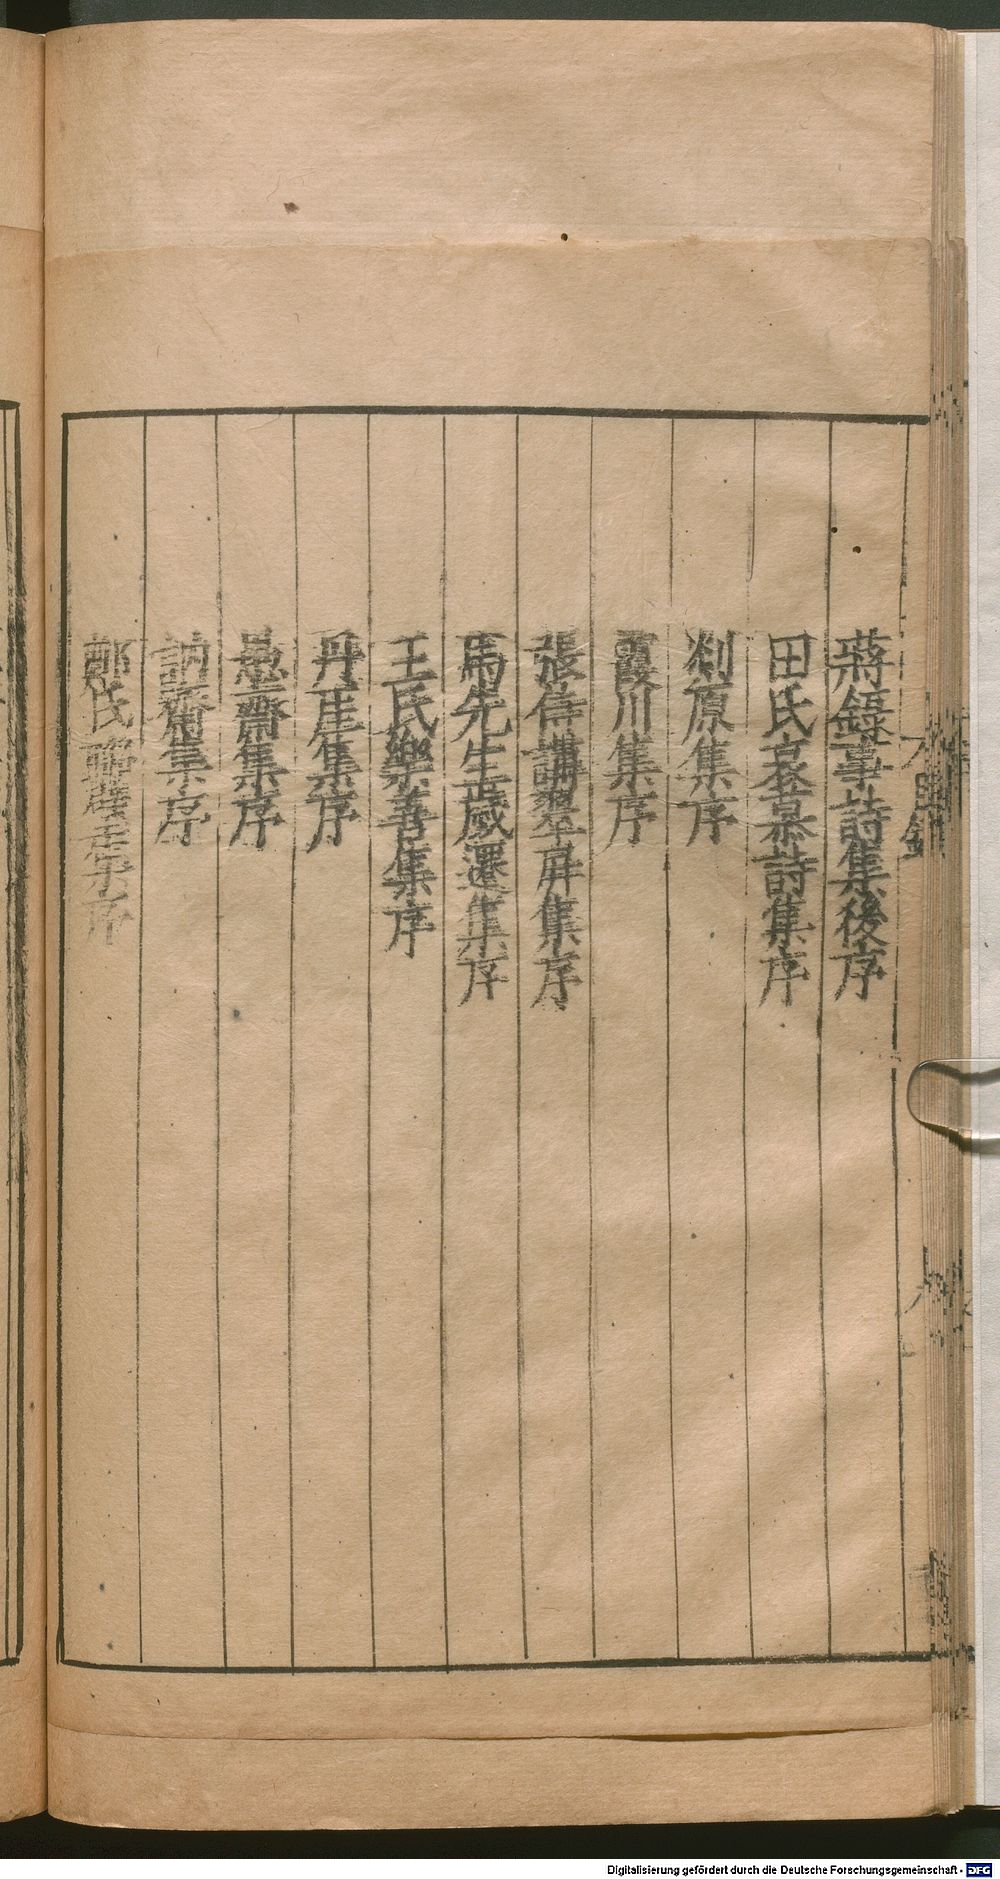 蔣錄事詩集後序
田氏哀慕詩集序
剡原集序
霞川集序
張侍講翠屏集序
馬先生歲還集序
王氏樂善集序
丹崖集序
愚齋集序
訥齋集序
鄭氏聯璧集序
目錄
Digitalisierung gefördert durch die Deutsche Forschungsgemeinschaft - DFG